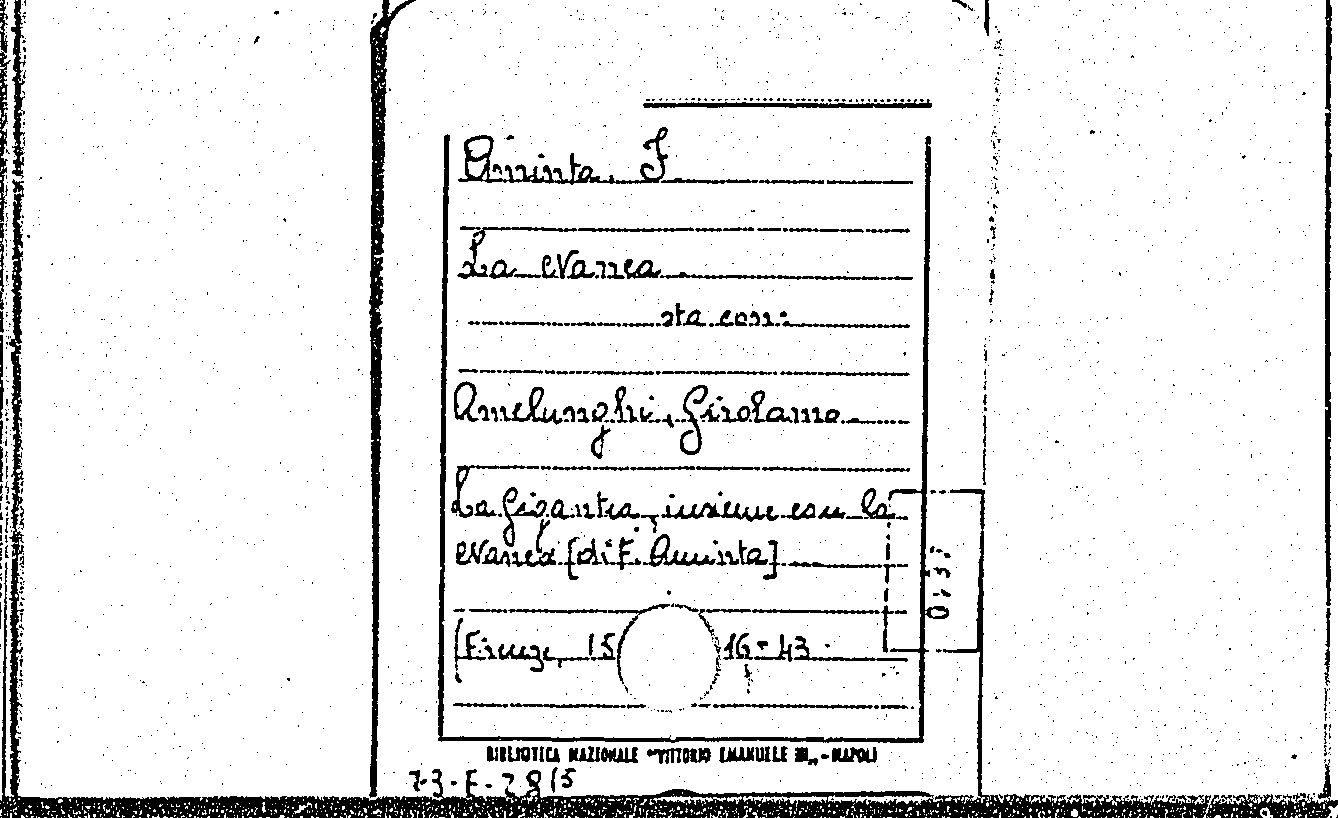 Aminta, F.
La eVanea
sta con:
Amelunghi, Girolamo.
La Gigantea, insieme con la
eVanea [di F. Aminta]
(Firenze, 15 16-43.
BIBLIOTECA NAZIONALE "VITTORIO EMANUELE III„ - NAPOLI
73-E-28 (5